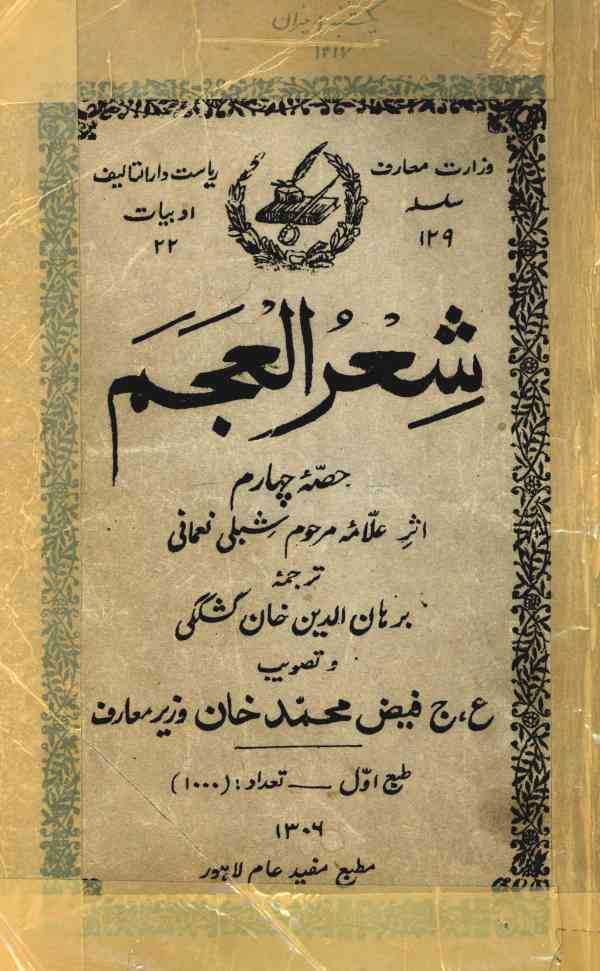 ۱۳۱۷
وزارت معارف
سلسله
۱۲۹
ریاست دارالتالیف
ادبیات
۲۲
شِعْرُ الْعَجَم
حصّۀ چهارم
اثرِ علّامه مرحوم شبلی نعمانی
ترجمۀ
برهان الدین خان کشککی
و تصویب
ع، ج فیض محمّد خان وزیر معارف
طبع اوّل — تعداد: (۱۰۰۰)
۱۳۰۶
مطبع مفید عام لاہور